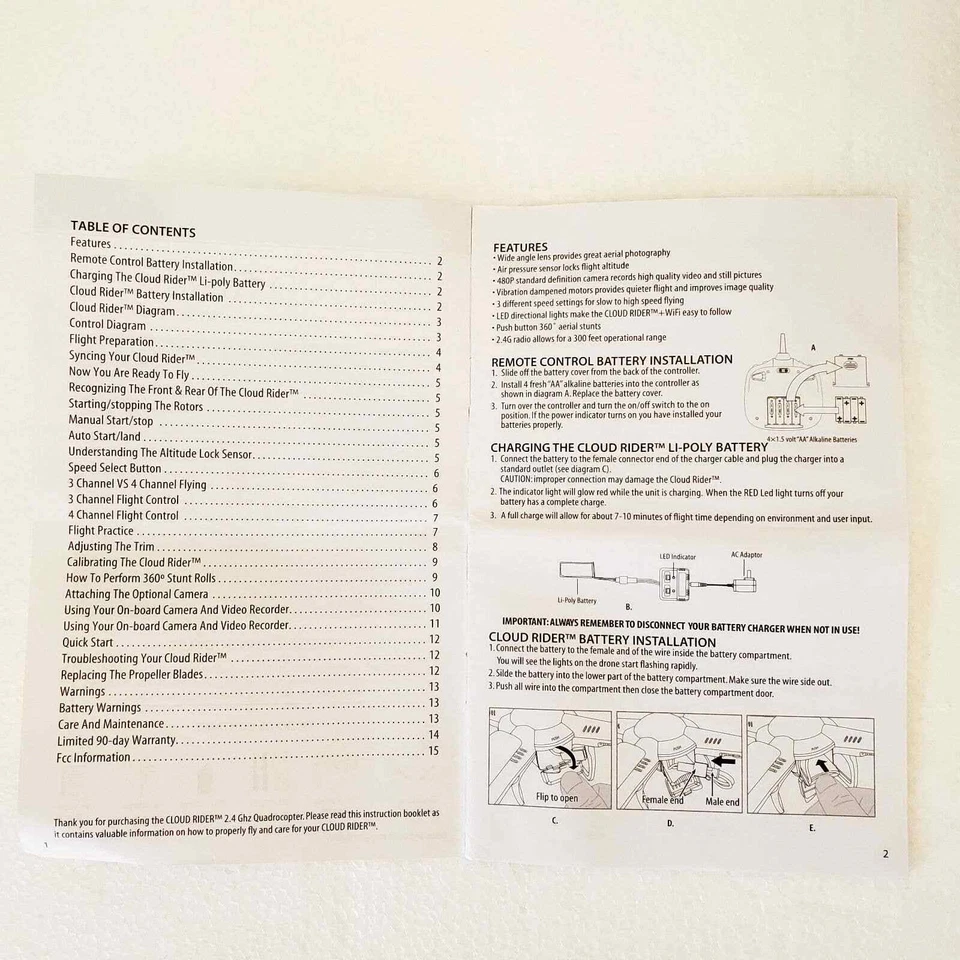 TABLE OF CONTENTS
Features . . . . . . . . . . . . . . . . . . . . 2
Remote Control Battery Installation . . . . . . . . . . 2
Charging The Cloud Rider™ Li-poly Battery . . . . . . . . . . 2
Cloud Rider™ Battery Installation . . . . . . . . . . 2
Cloud Rider™ Diagram . . . . . . . . . . 3
Control Diagram . . . . . . . . . . 3
Flight Preparation . . . . . . . . . . 4
Syncing Your Cloud Rider™ . . . . . . . . . . 4
Now You Are Ready To Fly . . . . . . . . . . 5
Recognizing The Front & Rear Of The Cloud Rider™ . . . . . . . . . . 5
Starting/stopping The Rotors . . . . . . . . . . 5
Manual Start/stop . . . . . . . . . . 5
Auto Start/land . . . . . . . . . . 5
Understanding The Altitude Lock Sensor . . . . . . . . . . 5
Speed Select Button . . . . . . . . . . 6
3 Channel VS 4 Channel Flying . . . . . . . . . . 6
3 Channel Flight Control . . . . . . . . . . 6
4 Channel Flight Control . . . . . . . . . . 7
Flight Practice . . . . . . . . . . 7
Adjusting The Trim . . . . . . . . . . 8
Calibrating The Cloud Rider™ . . . . . . . . . . 9
How To Perform 360º Stunt Rolls . . . . . . . . . . 9
Attaching The Optional Camera . . . . . . . . . . 10
Using Your On-board Camera And Video Recorder . . . . . . . . . . 10
Using Your On-board Camera And Video Recorder . . . . . . . . . . 11
Quick Start . . . . . . . . . . 12
Troubleshooting Your Cloud Rider™ . . . . . . . . . . 12
Replacing The Propeller Blades . . . . . . . . . . 12
Warnings . . . . . . . . . . 13
Battery Warnings . . . . . . . . . . 13
Care And Maintenance . . . . . . . . . . 13
Limited 90-day Warranty . . . . . . . . . . 14
Fcc Information . . . . . . . . . . 15
Thank you for purchasing the CLOUD RIDER™ 2.4 Ghz Quadrocopter. Please read this instruction booklet as
it contains valuable information on how to properly fly and care for your CLOUD RIDER™.
1
FEATURES
• Wide angle lens provides great aerial photography
• Air pressure sensor locks flight altitude
• 480P standard definition camera records high quality video and still pictures
• Vibration dampened motors provides quieter flight and improves image quality
• 3 different speed settings for slow to high speed flying
• LED directional lights make the CLOUD RIDER™+WiFi easy to follow
• Push button 360˚ aerial stunts
• 2.4G radio allows for a 300 feet operational range
REMOTE CONTROL BATTERY INSTALLATION
1. Slide off the battery cover from the back of the controller.
2. Install 4 fresh "AA" alkaline batteries into the controller as
shown in diagram A. Replace the battery cover.
3. Turn over the controller and turn the on/off switch to the on
position. If the power indicator turns on you have installed your
batteries properly.
A
4×1.5 volt "AA" Alkaline Batteries
CHARGING THE CLOUD RIDER™ LI-POLY BATTERY
1. Connect the battery to the female connector end of the charger cable and plug the charger into a
standard outlet (see diagram C).
CAUTION: improper connection may damage the Cloud Rider™.
2. The indicator light will glow red while the unit is charging. When the RED Led light turns off your
battery has a complete charge.
3. A full charge will allow for about 7-10 minutes of flight time depending on environment and user input.
LED Indicator
AC Adaptor
Li-Poly Battery
B.
IMPORTANT: ALWAYS REMEMBER TO DISCONNECT YOUR BATTERY CHARGER WHEN NOT IN USE!
CLOUD RIDER™ BATTERY INSTALLATION
1. Connect the battery to the female and of the wire inside the battery compartment.
You will see the lights on the drone start flashing rapidly.
2. Silde the battery into the lower part of the battery compartment. Make sure the wire side out.
3. Push all wire into the compartment then close the battery compartment door.
PUSH
PUSH
PUSH
Flip to open
Female end
Male end
C.
D.
E.
2